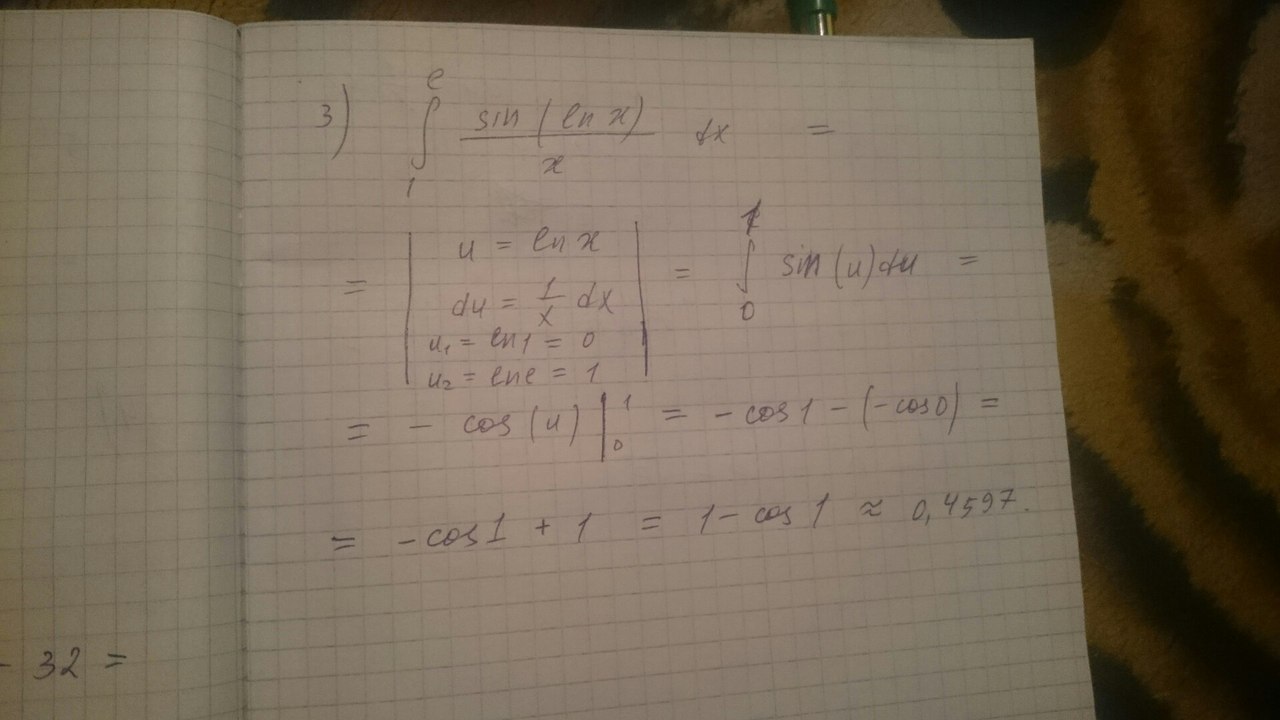 3) ∫₁ᵉ sin(ln x)/x dx =
= | u = ln x
du = 1/x dx
u₁ = ln1 = 0
u₂ = lne = 1 | = ∫₀¹ sin(u)du =
= - cos(u) |₀¹ = - cos1 - (-cos0) =
= - cos1 + 1 = 1 - cos1 ≈ 0,4597.
- 32 =